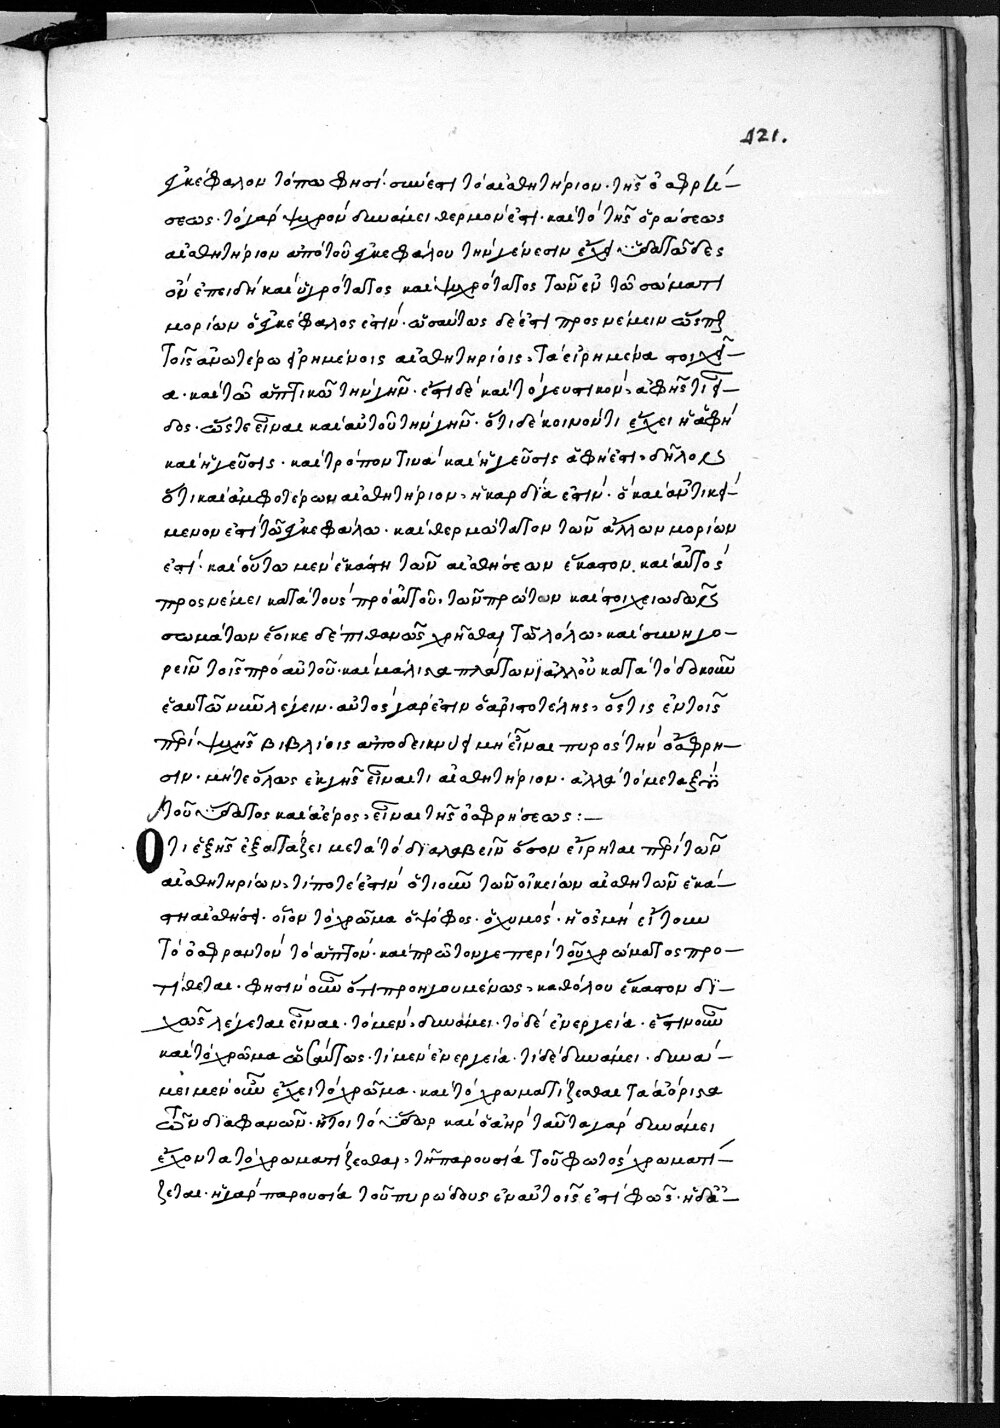 121.
ἐγκεφάλου τόπω φησί· συνέστι τὸ αἰσθητήριον· τῆς ὀσφρή-
σεως· τὸ γὰρ ψυχρὸν δυνάμει θερμόν ἐστι· καὶ τὸ τῆς ὁράσεως
αἰσθητήριον ἀπὸ τοῦ ἐγκεφάλου τὴν γένεσιν ἔχει· ὑδατῶδες
ὂν ἐπειδὴ καὶ ὑγρότατος καὶ ψυχρότατος τῶν ἐν τῶ σώματι
μορίων ὁ ἐγκέφαλος ἐστίν· ὡσαύτως δὲ ἔστι προσνέμειν ὥσπερ
τοῖς ἀνωτέρω εἰρημένοις αἰσθητηρίοις, τὰ εἰρημένα στοιχεῖ-
α· καὶ τῶ ἁπτικῶ τὴν γῆν· ἔστι δὲ καὶ τὸ γευστικὸν, ἁφῆς τὶ εἶ-
δος· ὥστε εἶναι καὶ αὐτοῦ τὴν γῆν· ὅτι δὲ κοινόν τι ἔχει ἡ ἁφὴ
καὶ ἡ γεῦσις· καὶ τρόπον τινὰ καὶ ἡ γεῦσις ἁφή ἐστι, δῆλον
ὅτι καὶ ἀμφοτέρων αἰσθητήριον, ἡ καρδία ἐστίν· ὃ καὶ ἀντικεί-
μενον ἐστὶ τῶ ἐγκεφάλω· καὶ θερμώτατον τῶν ἄλλων μορίων
ἐστί· καὶ οὕτω μὲν ἑκάστη τῶν αἰσθήσεων ἕκαστον. καὶ αὐτὸς
προσνέμει κατὰ τοὺς πρὸ αὐτοῦ, τῶν πρώτων καὶ στοιχειωδῶν
σωμάτων ἔοικε δὲ πιθανῶς χρῆσθαι τῶ λόγω, καὶ συνηγο-
ρεῖν τοῖς πρὸ αὐτοῦ· καὶ μάλιστα πλάτωνι ἀλλ' οὐ κατὰ τὸ δοκοῦν
ἑαυτῶ νῦν λέγειν· αὐτὸς γὰρ ἐστὶν ὁ ἀριστοτέλης, ὅστις ἐν τοῖς
περὶ ψυχῆς βιβλίοις ἀποδείκνυσι μὴ εἶναι πυρὸς τὴν ὄσφρη-
σιν· μήτε ὅλως ἐκ γῆς εἶναι τι αἰσθητήριον· ἀλλὰ τὸ μεταξὺ
τοῦ ὕδατος καὶ ἀέρος, εἶναι τῆς ὀσφρήσεως:—
Ὅτι ἑξῆς ἐξετάζει μετὰ τὸ διαλαβεῖν ὅσον εἴρηται περὶ τῶν
αἰσθητηρίων, τί ποτέ ἐστιν ὁτιοῦν τῶν οἰκείων αἰσθητῶν ἑκά-
στη αἰσθήσει· οἷον τὸ χρῶμα ὁ ψόφος· ὁ χυμὸς· ἡ ὀσμὴ εἴτουν
τὸ ὀσφραντὸν τὸ ἁπτόν· καὶ πρῶτον γε περὶ τοῦ χρώματος προ-
τίθεται· φησὶν οὖν ὅτι προηγουμένως, καθόλου ἕκαστον δι-
χῶς λέγεται εἶναι· τὸ μὲν, δυνάμει· τὸ δὲ ἐνεργεία· ἔστιν οὖν
καὶ τὸ χρῶμα ὡσαύτως· τὶ μὲν ἐνεργεία· τὶ δὲ δυνάμει· δυνά-
μει μὲν οὖν ἔχει τὸ χρῶμα· καὶ τὸ χρωματίζεσθαι τὰ ἀόριστα
τῶν διαφανῶν· ἤτοι τὸ ὕδωρ καὶ ὁ ἀὴρ ταῦτα γὰρ δυνάμει
ἔχοντα τὸ χρωματίζεσθαι, τῆ παρουσία τοῦ φωτὸς χρωματί-
ζεται· ἡ γὰρ παρουσία τοῦ πυρώδους ἐν αὐτοῖς ἐστὶ φῶς· ἡ δὲ ἀ-